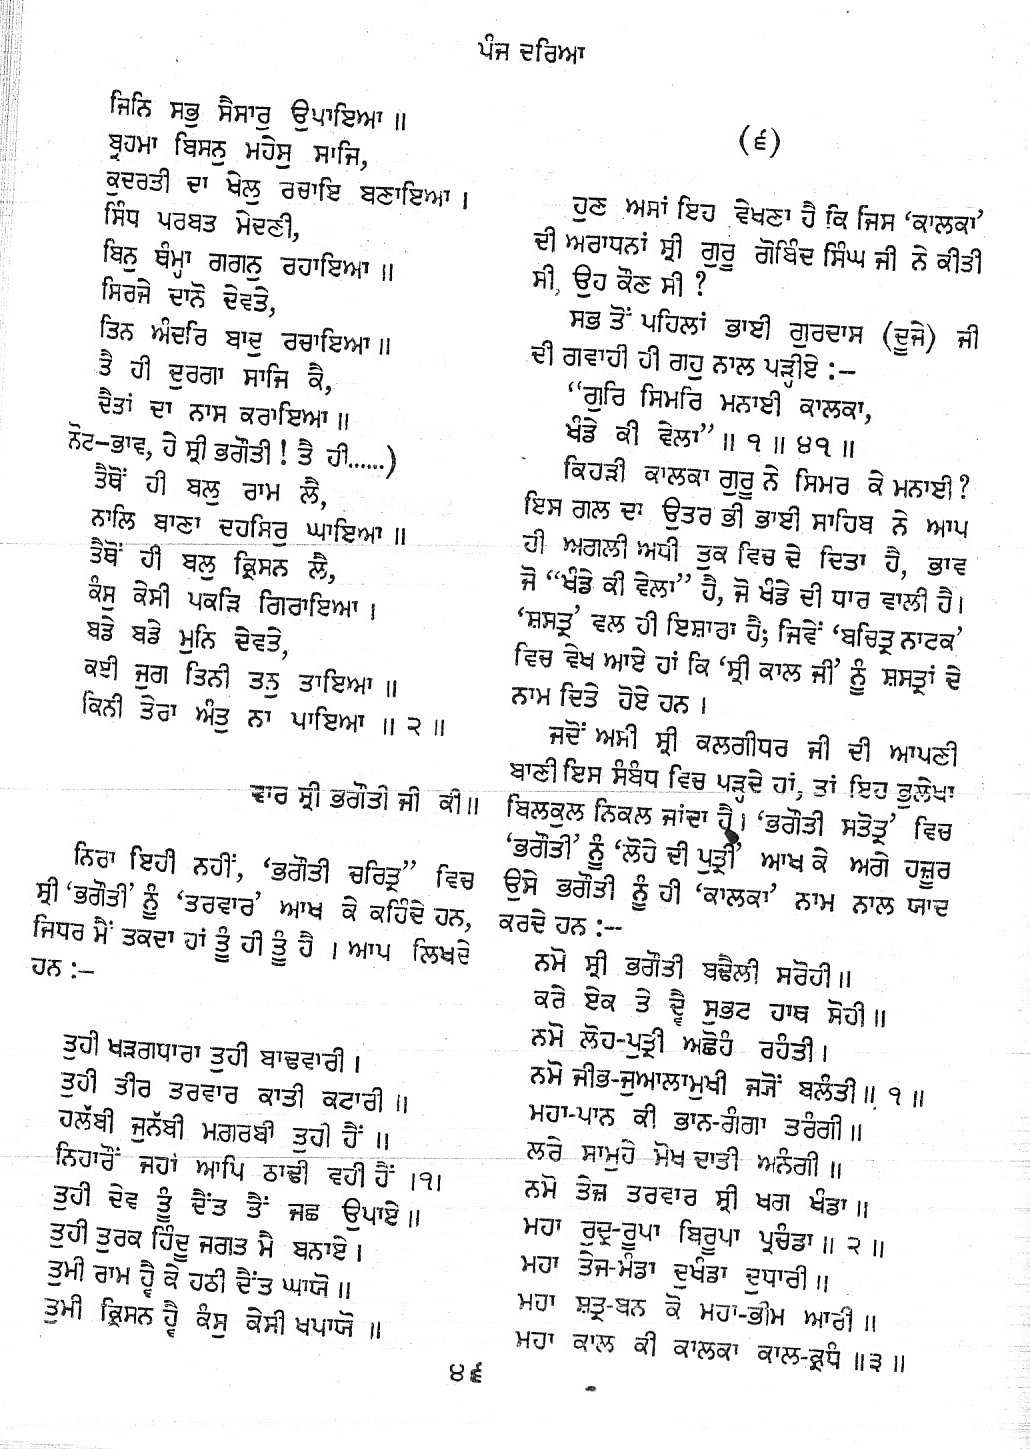 ਪੰਜ ਦਰਿਆ
ਜਿਨਿ ਸਭੁ ਸੈਸਾਰੁ ਉਪਾਇਆ ॥
ਬ੍ਰਹਮਾ ਬਿਸਨੁ ਮਹੇਸੁ ਸਾਜਿ,
ਕੁਦਰਤੀ ਦਾ ਖੇਲੁ ਰਚਾਇ ਬਣਾਇਆ ।
ਸਿੰਧ ਪਰਬਤ ਮੇਦਣੀ,
ਬਿਨੁ ਥੰਮ੍ਹਾ ਗਗਨੁ ਰਹਾਇਆ ॥
ਸਿਰਜੇ ਦਾਨੋ ਦੇਵਤੇ,
ਤਿਨ ਅੰਦਰਿ ਬਾਦੁ ਰਚਾਇਆ ॥
ਤੈ ਹੀ ਦੁਰਗਾ ਸਾਜਿ ਕੈ,
ਦੈਤਾਂ ਦਾ ਨਾਸ ਕਰਾਇਆ ॥
ਨੋਟ–ਭਾਵ, ਹੇ ਸ੍ਰੀ ਭਗੌਤੀ ! ਤੈ ਹੀ......)
ਤੈਥੋਂ ਹੀ ਬਲੁ ਰਾਮ ਲੈ,
ਨਾਲਿ ਬਾਣਾ ਦਹਸਿਰੁ ਘਾਇਆ ॥
ਤੈਥੋਂ ਹੀ ਬਲੁ ਕ੍ਰਿਸਨ ਲੈ,
ਕੰਸੁ ਕੇਸੀ ਪਕੜਿ ਗਿਰਾਇਆ ।
ਬਡੇ ਬਡੇ ਮੁਨਿ ਦੇਵਤੇ,
ਕਈ ਜੁਗ ਤਿਨੀ ਤਨੁ ਤਾਇਆ ॥
ਕਿਨੀ ਤੇਰਾ ਅੰਤੁ ਨਾ ਪਾਇਆ ॥ ੨ ॥
ਵਾਰ ਸ੍ਰੀ ਭਗੌਤੀ ਜੀ ਕੀ॥
ਨਿਰਾ ਇਹੀ ਨਹੀਂ, ‘ਭਗੌਤੀ ਚਰਿਤ੍ਰ” ਵਿਚ
ਸ੍ਰੀ ‘ਭਗੌਤੀ’ ਨੂੰ ‘ਤਰਵਾਰ’ ਆਖ ਕੇ ਕਹਿੰਦੇ ਹਨ,
ਜਿਧਰ ਮੈਂ ਤਕਦਾ ਹਾਂ ਤੂੰ ਹੀ ਤੂੰ ਹੈ । ਆਪ ਲਿਖਦੇ
ਹਨ :–
ਤੁਹੀ ਖੜਗਧਾਰਾ ਤੁਹੀ ਬਾਢਵਾਰੀ ।
ਤੁਹੀ ਤੀਰ ਤਰਵਾਰ ਕਾਤੀ ਕਟਾਰੀ ॥
ਹਲੱਬੀ ਜੁਨੱਬੀ ਮਗ਼ਰਬੀ ਤੁਹੀ ਹੈਂ ॥
ਨਿਹਾਰੌਂ ਜਹਾਂ ਆਪਿ ਠਾਢੀ ਵਹੀ ਹੈਂ ।੧।
ਤੁਹੀ ਦੇਵ ਤੂੰ ਦੈਂਤ ਤੈਂ ਜਛ ਉਪਾਏ ॥
ਤੁਹੀ ਤੁਰਕ ਹਿੰਦੂ ਜਗਤ ਮੈ ਬਨਾਏ ।
ਤੁਮੀ ਰਾਮ ਹ੍ਵੈ ਕੇ ਹਠੀ ਦੈਂਤ ਘਾਯੋ ॥
ਤੁਮੀ ਕ੍ਰਿਸਨ ਹ੍ਵੈ ਕੰਸੁ ਕੇਸੀ ਖਪਾਯੋ ॥
(੬)
ਹੁਣ ਅਸਾਂ ਇਹ ਵੇਖਣਾ ਹੈ ਕਿ ਜਿਸ ‘ਕਾਲਕਾ’
ਦੀ ਅਰਾਧਨਾਂ ਸ੍ਰੀ ਗੁਰੂ ਗੋਬਿੰਦ ਸਿੰਘ ਜੀ ਨੇ ਕੀਤੀ
ਸੀ, ਉਹ ਕੌਣ ਸੀ ?
ਸਭ ਤੋਂ ਪਹਿਲਾਂ ਭਾਈ ਗੁਰਦਾਸ (ਦੂਜੇ) ਜੀ
ਦੀ ਗਵਾਹੀ ਹੀ ਗਹੁ ਨਾਲ ਪੜ੍ਹੀਏ :–
“ਗੁਰਿ ਸਿਮਰਿ ਮਨਾਈ ਕਾਲਕਾ,
ਖੰਡੇ ਕੀ ਵੇਲਾ” ॥ ੧ ॥ ੪੧ ॥
ਕਿਹੜੀ ਕਾਲਕਾ ਗੁਰੂ ਨੇ ਸਿਮਰ ਕੇ ਮਨਾਈ ?
ਇਸ ਗਲ ਦਾ ਉਤਰ ਭੀ ਭਾਈ ਸਾਹਿਬ ਨੇ ਆਪ
ਹੀ ਅਗਲੀ ਅਧੀ ਤੁਕ ਵਿਚ ਦੇ ਦਿਤਾ ਹੈ, ਭਾਵ
ਜੋ “ਖੰਡੇ ਕੀ ਵੇਲਾ” ਹੈ, ਜੋ ਖੰਡੇ ਦੀ ਧਾਰ ਵਾਲੀ ਹੈ।
‘ਸ਼ਸਤ੍ਰ’ ਵਲ ਹੀ ਇਸ਼ਾਰਾ ਹੈ; ਜਿਵੇਂ ‘ਬਚਿਤ੍ਰ ਨਾਟਕ’
ਵਿਚ ਵੇਖ ਆਏ ਹਾਂ ਕਿ ‘ਸ੍ਰੀ ਕਾਲ ਜੀ’ ਨੂੰ ਸ਼ਸਤ੍ਰਾਂ ਦੇ
ਨਾਮ ਦਿਤੇ ਹੋਏ ਹਨ ।
ਜਦੋਂ ਅਸੀ ਸ੍ਰੀ ਕਲਗੀਧਰ ਜੀ ਦੀ ਆਪਣੀ
ਬਾਣੀ ਇਸ ਸੰਬੰਧ ਵਿਚ ਪੜ੍ਹਦੇ ਹਾਂ, ਤਾਂ ਇਹ ਭੁਲੇਖਾ
ਬਿਲਕੁਲ ਨਿਕਲ ਜਾਂਦਾ ਹੈ। ‘ਭਗੌਤੀ ਸਤੋਤ੍ਰ’ ਵਿਚ
‘ਭਗੌਤੀ’ ਨੂੰ ‘ਲੋਹੇ ਦੀ ਪੁਤ੍ਰੀ’ ਆਖ ਕੇ ਅਗੇ ਹਜ਼ੂਰ
ਉਸੇ ਭਗੌਤੀ ਨੂੰ ਹੀ ‘ਕਾਲਕਾ’ ਨਾਮ ਨਾਲ ਯਾਦ
ਕਰਦੇ ਹਨ :--
ਨਮੋ ਸ੍ਰੀ ਭਗੌਤੀ ਬਢੈਲੀ ਸਰੋਹੀ॥
ਕਰੇ ਏਕ ਤੇ ਦ੍ਵੈ ਸੁਭਟ ਹਾਥ ਸੋਹੀ॥
ਨਮੋ ਲੋਹ-ਪੁਤ੍ਰੀ ਅਛੋਹੰ ਰਹੰਤੀ।
ਨਮੋ ਜੀਭ-ਜੁਆਲਾਮੁਖੀ ਜ੍ਯੋਂ ਬਲੰਤੀ॥ ੧ ॥
ਮਹਾ-ਪਾਨ ਕੀ ਭਾਨ-ਗੰਗਾ ਤਰੰਗੀ॥
ਲਰੇ ਸਾਮੁਹੇ ਮੋਖ ਦਾਤੀ ਅਨੰਗੀ॥
ਨਮੋ ਤੇਜ਼ ਤਰਵਾਰ ਸ੍ਰੀ ਖਗ ਖੰਡਾ॥
ਮਹਾ ਰੁਦ੍ਰ-ਰੂਪਾ ਬਿਰੂਪਾ ਪ੍ਰਚੰਡਾ॥ ੨ ॥
ਮਹਾ ਤੇਜ-ਮੰਡਾ ਦੁਖੰਡਾ ਦੁਧਾਰੀ॥
ਮਹਾ ਸ਼ਤ੍ਰ-ਬਨ ਕੋ ਮਹਾਂ-ਭੀਮ ਆਰੀ॥
ਮਹਾ ਕਾਲ ਕੀ ਕਾਲਕਾ ਕਾਲ-ਕ੍ਰਧੰ॥੩॥
੪੬